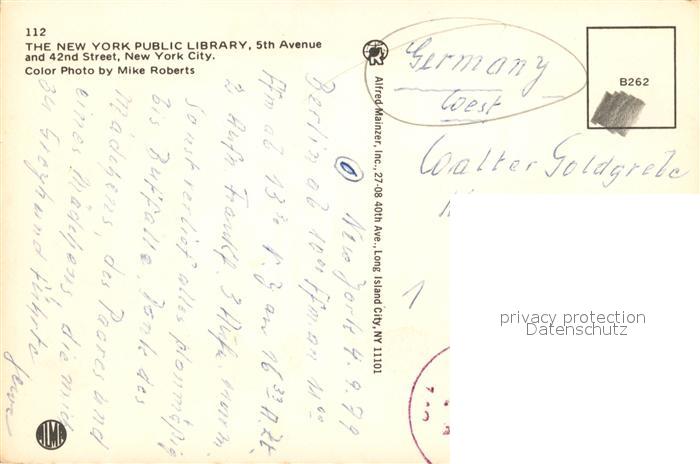 112
THE NEW YORK PUBLIC LIBRARY, 5th Avenue
and 42nd Street, New York City.
Color Photo by Mike Roberts
Alfred Mainzer, Inc., 27-08 40th Ave., Long Island City, NY 11101
B262
Germany
West
Walter Goldgrebe
New York 4.9.79
Berlin ab 10 Ffm an 11
Ffm ab 13 N.Y. an 16
2 Std. Frankf. 3
Sonst verlief alles planmäßig
bis Buffallo. Dank des
Mädchens, des Paares und
eines Mädchens, die mich
zu Greyhound führte
privacy protection
Datenschutz